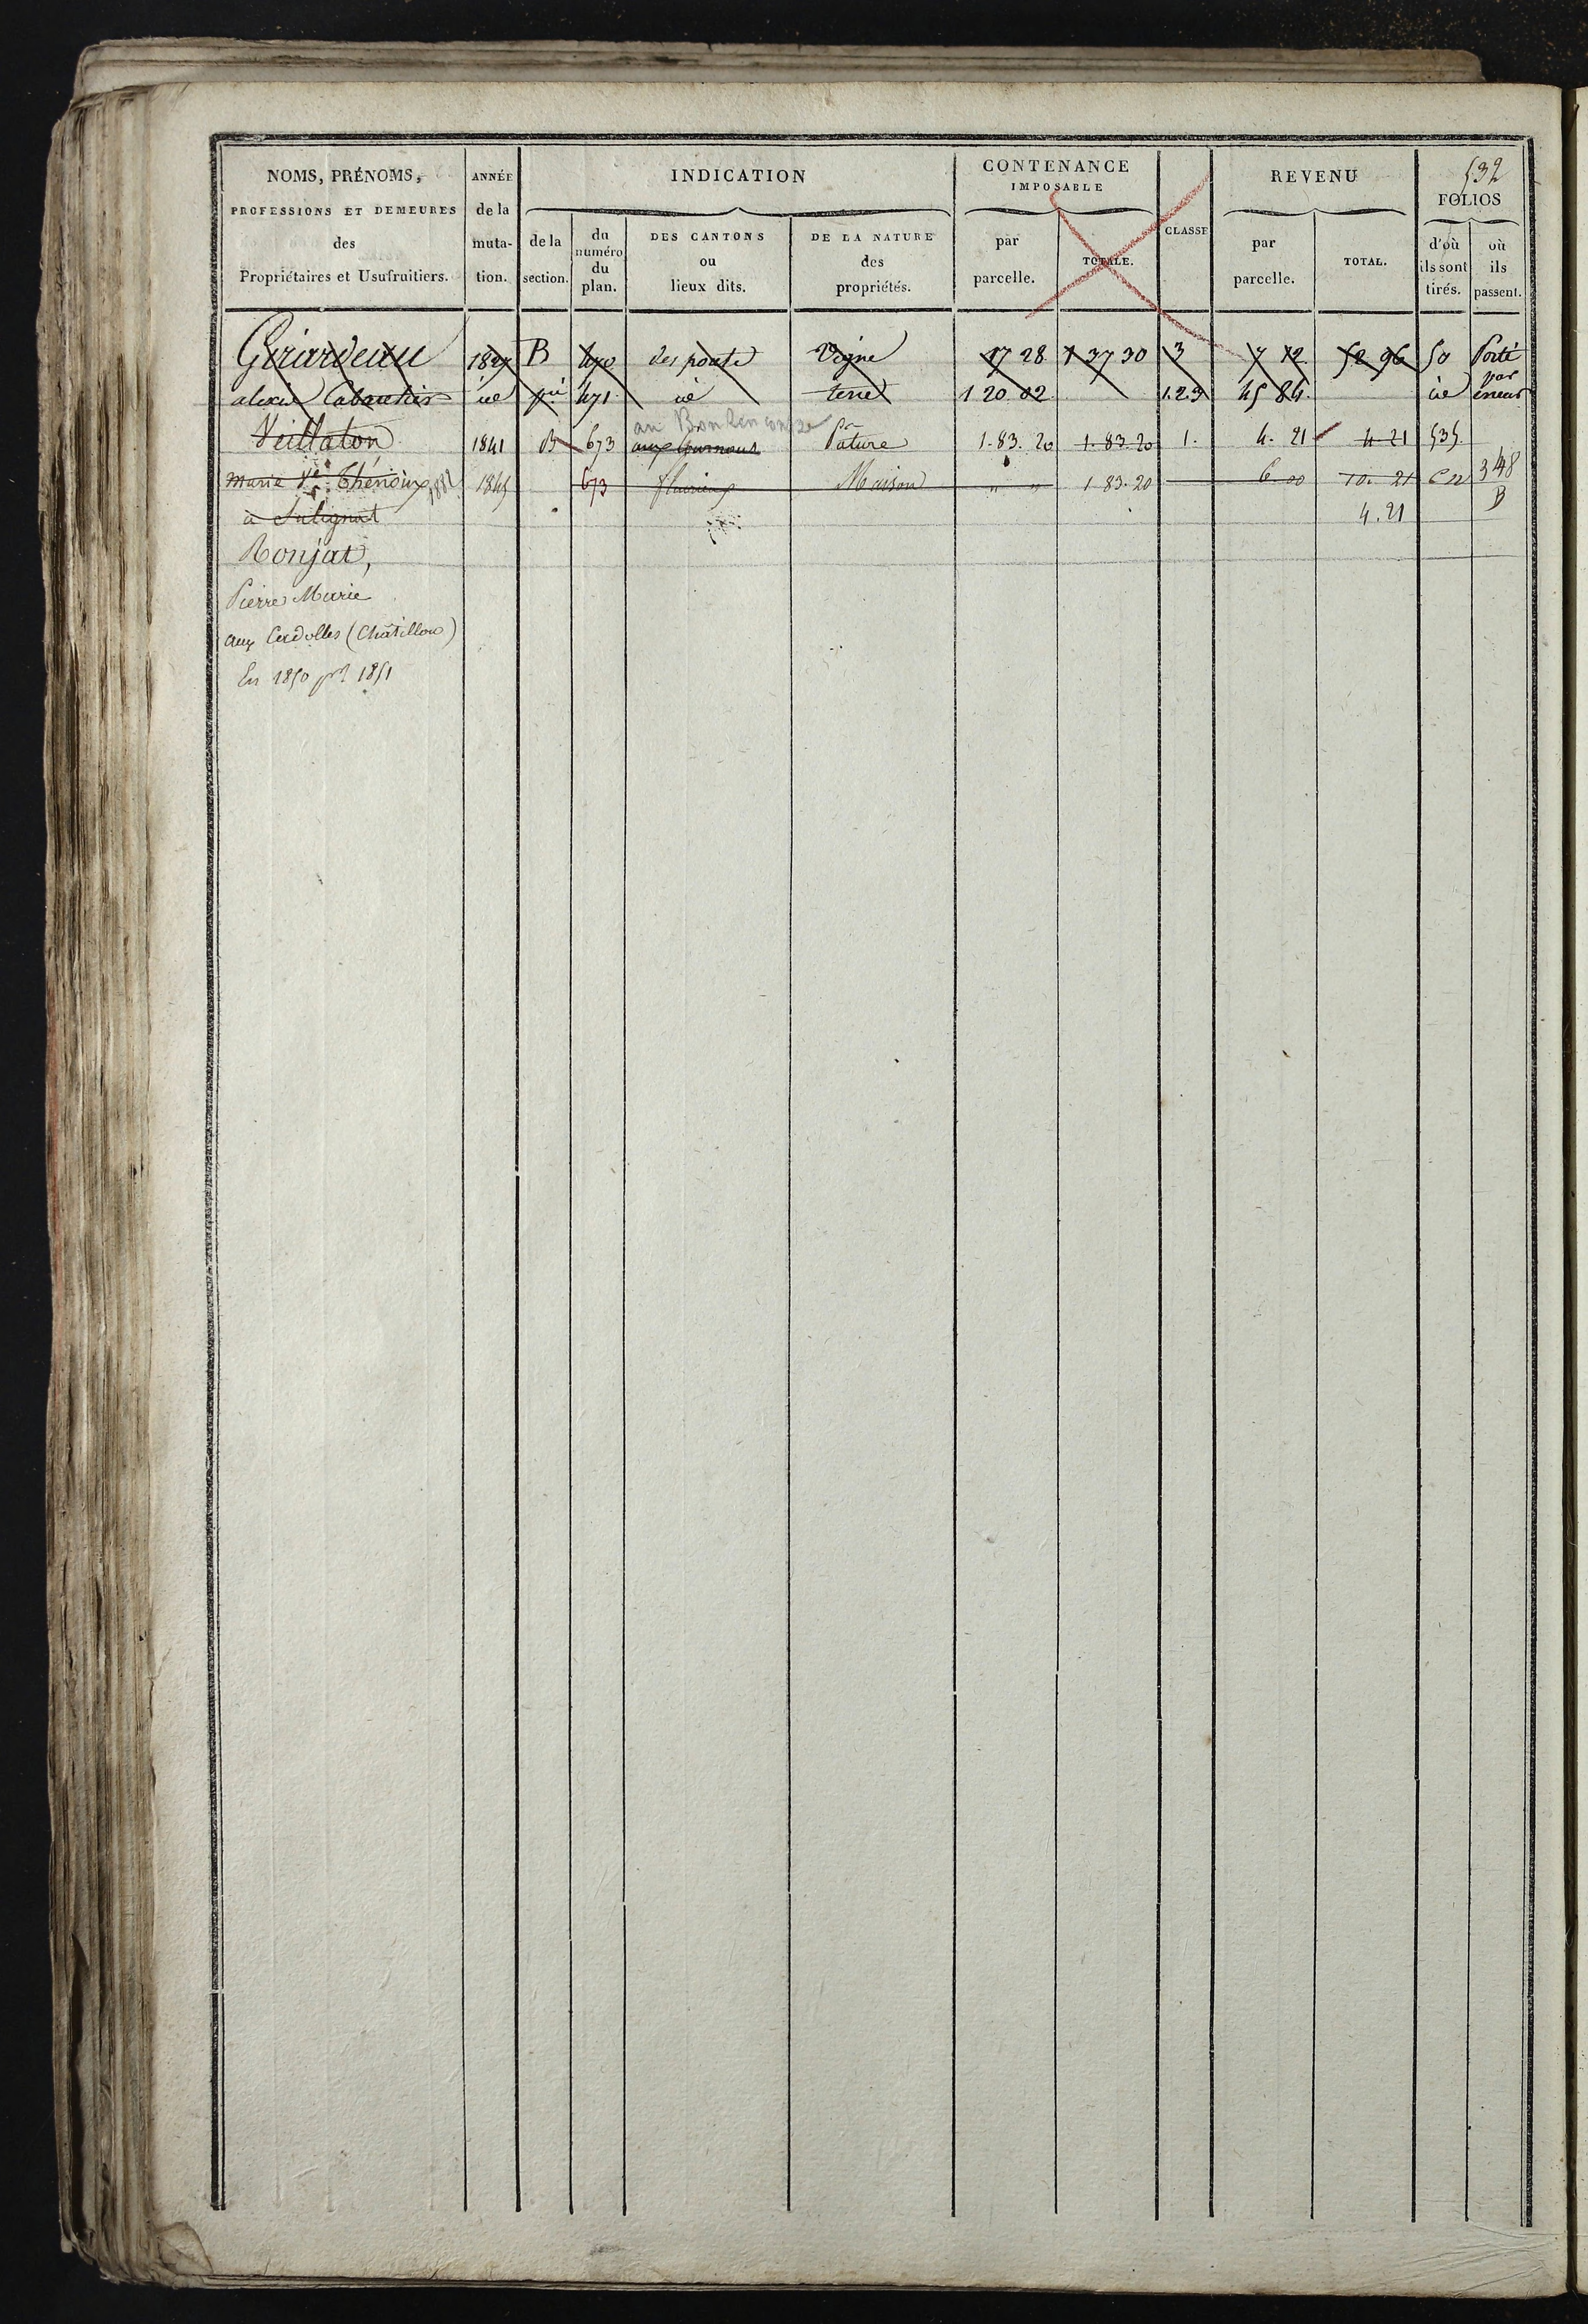 532
NOMS, PRÉNOMS, PROFESSIONS ET DEMEURES des Propriétaires et Usufruitiers.
ANNÉE de la muta-tion.
INDICATION
de la section.
du numéro du plan.
DES CANTONS ou lieux dits.
DE LA NATURE des propriétés.
CONTENANCE IMPOSABLE
par parcelle.
TOTALE.
CLASSE
REVENU
par parcelle.
TOTAL.
FOLIOS
d'où ils sont tirés.
où ils passent.
Girardeau 1827 B 470 des ponts Vigne 17 28 1 37 30 3 7 12 52 96 50 Porté par erreur
alexis id 471 id terre 1 20 02 1.2.3 45 84 id
au
Veillaton 1841 B 673 aux Pature 1.83.20 1.83.20 1. 4.21 4.21 535
Marie Ve Thénoux 1845 673 Maison " " 1 83.20 6.00 10.21 Cn 348 B
à Salignat 4.21
Ronjat,
Pierre Marie
aux (Châtillon)
En 1850 pr 1851